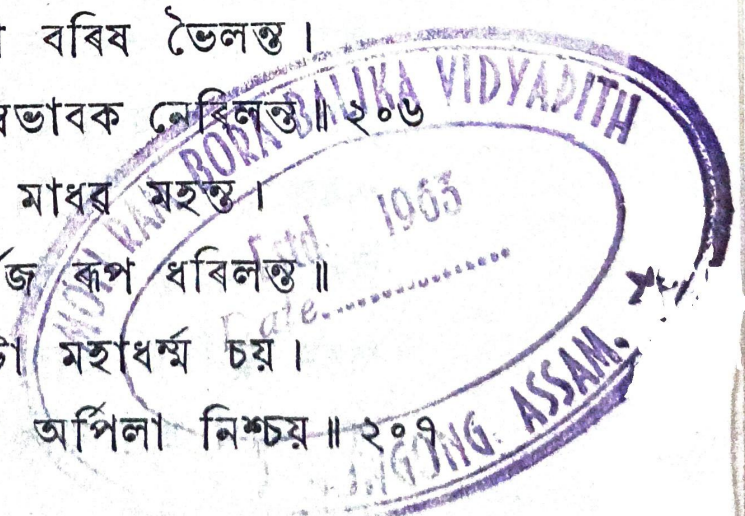 বৰিষ ভৈলন্ত ।
নেৰিলন্ত ॥ ২০৬
মাধৱ মহন্ত ।
ৰূপ ধৰিলন্ত ॥
মহাধৰ্ম্ম চয় ।
অৰ্পিলা নিশ্চয় ॥ ২০৭
RAM BORA BALIKA VIDYAPITH
Estd. 1963
Date.
ASSAM.